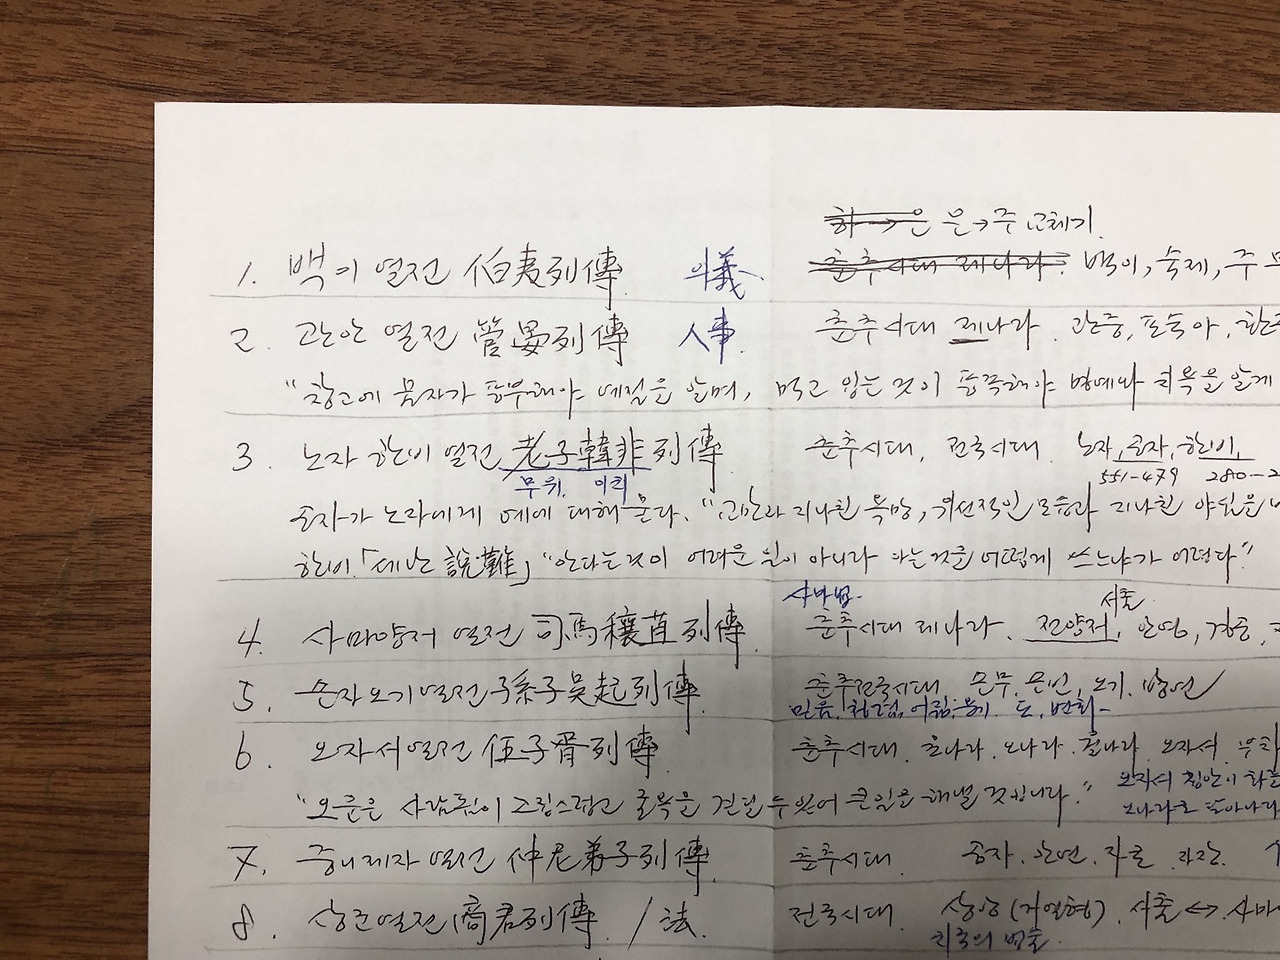 하→은 은→주 교체기.
1. 백이 열전 伯夷列傳 의義 춘추시대 제나라. 백이, 숙제, 주
2. 관안 열전 管晏列傳 人事. 춘추시대 제나라. 관중, 포숙아,
"창고에 물자가 풍부해야 예절을 알며, 먹고 입는 것이 풍족해야 명예와 치욕을 알게
3. 노자 한비 열전 老子韓非列傳 춘추시대, 전국시대. 노자, 공자, 한비,
무위. 이치 551-479 280-2
공자가 노자에게 예에 대해 묻다. "교만과 지나친 욕망, 위선적인 모습과 지나친 야심을
한비. 「세난 說難」 "안다는 것이 어려운 일이 아니라 아는 것을 어떻게 쓰느냐가 어렵다."
사마법. 서출
4. 사마양저 열전 司馬穰苴列傳. 춘추시대 제나라. 전양저, 안영, 경공,
5. 손자오기열전 孫子吳起列傳. 춘추전국시대 손무. 손빈, 오기. 방연
믿음, 청렴, 어짊, 용기. 도, 변화-
6. 오자서열전 伍子胥列傳. 춘추시대. 초나라. 오나라. 월나라. 오자서.
오자서 집안이
"모름은 사람됨이 그렇스렵고 굴욕을 견딜 수 있어 큰일을 해낼 것입니다." 오나라로 달아나다
7. 중니제자 열전 仲尼弟子列傳. 춘추시대 공자. 안연. 자로. 자공.
8. 상군열전 商君列傳. / 法. 전국시대. 상앙 (거열형). 서출 ↔ 사마
치국의 법술